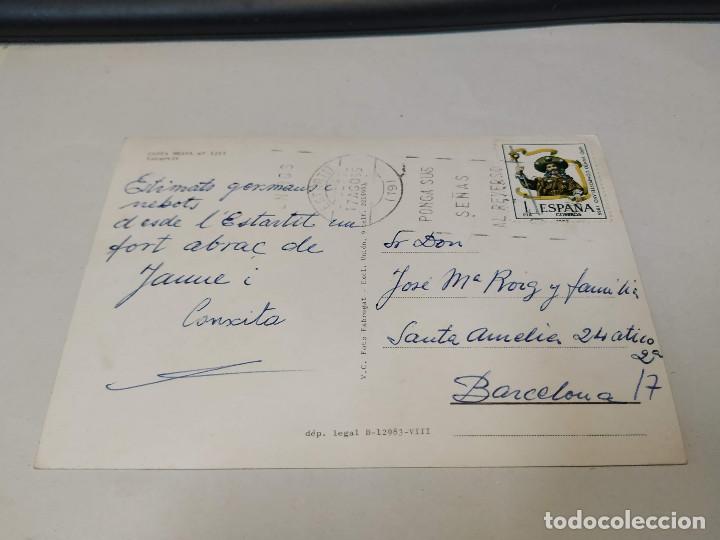 COSTA BRAVA nº 1211
Estartit
Estimats germans i
nebots
desde l'Estartit un
fort abraç de
Jaume i
Conxita
V.C. Foto Fabregat - Excl. Unión, Distr.
dép. legal B-12983-VIII
17 AGO 65
(19)
PONGA SUS
SEÑAS
AL REVERSO
1
PTA
ESPAÑA
CORREOS
Sr Don
José Mª Roig y familia
Santa Amelia 24 atico
2ª
Barcelona /7
todocoleccion.net